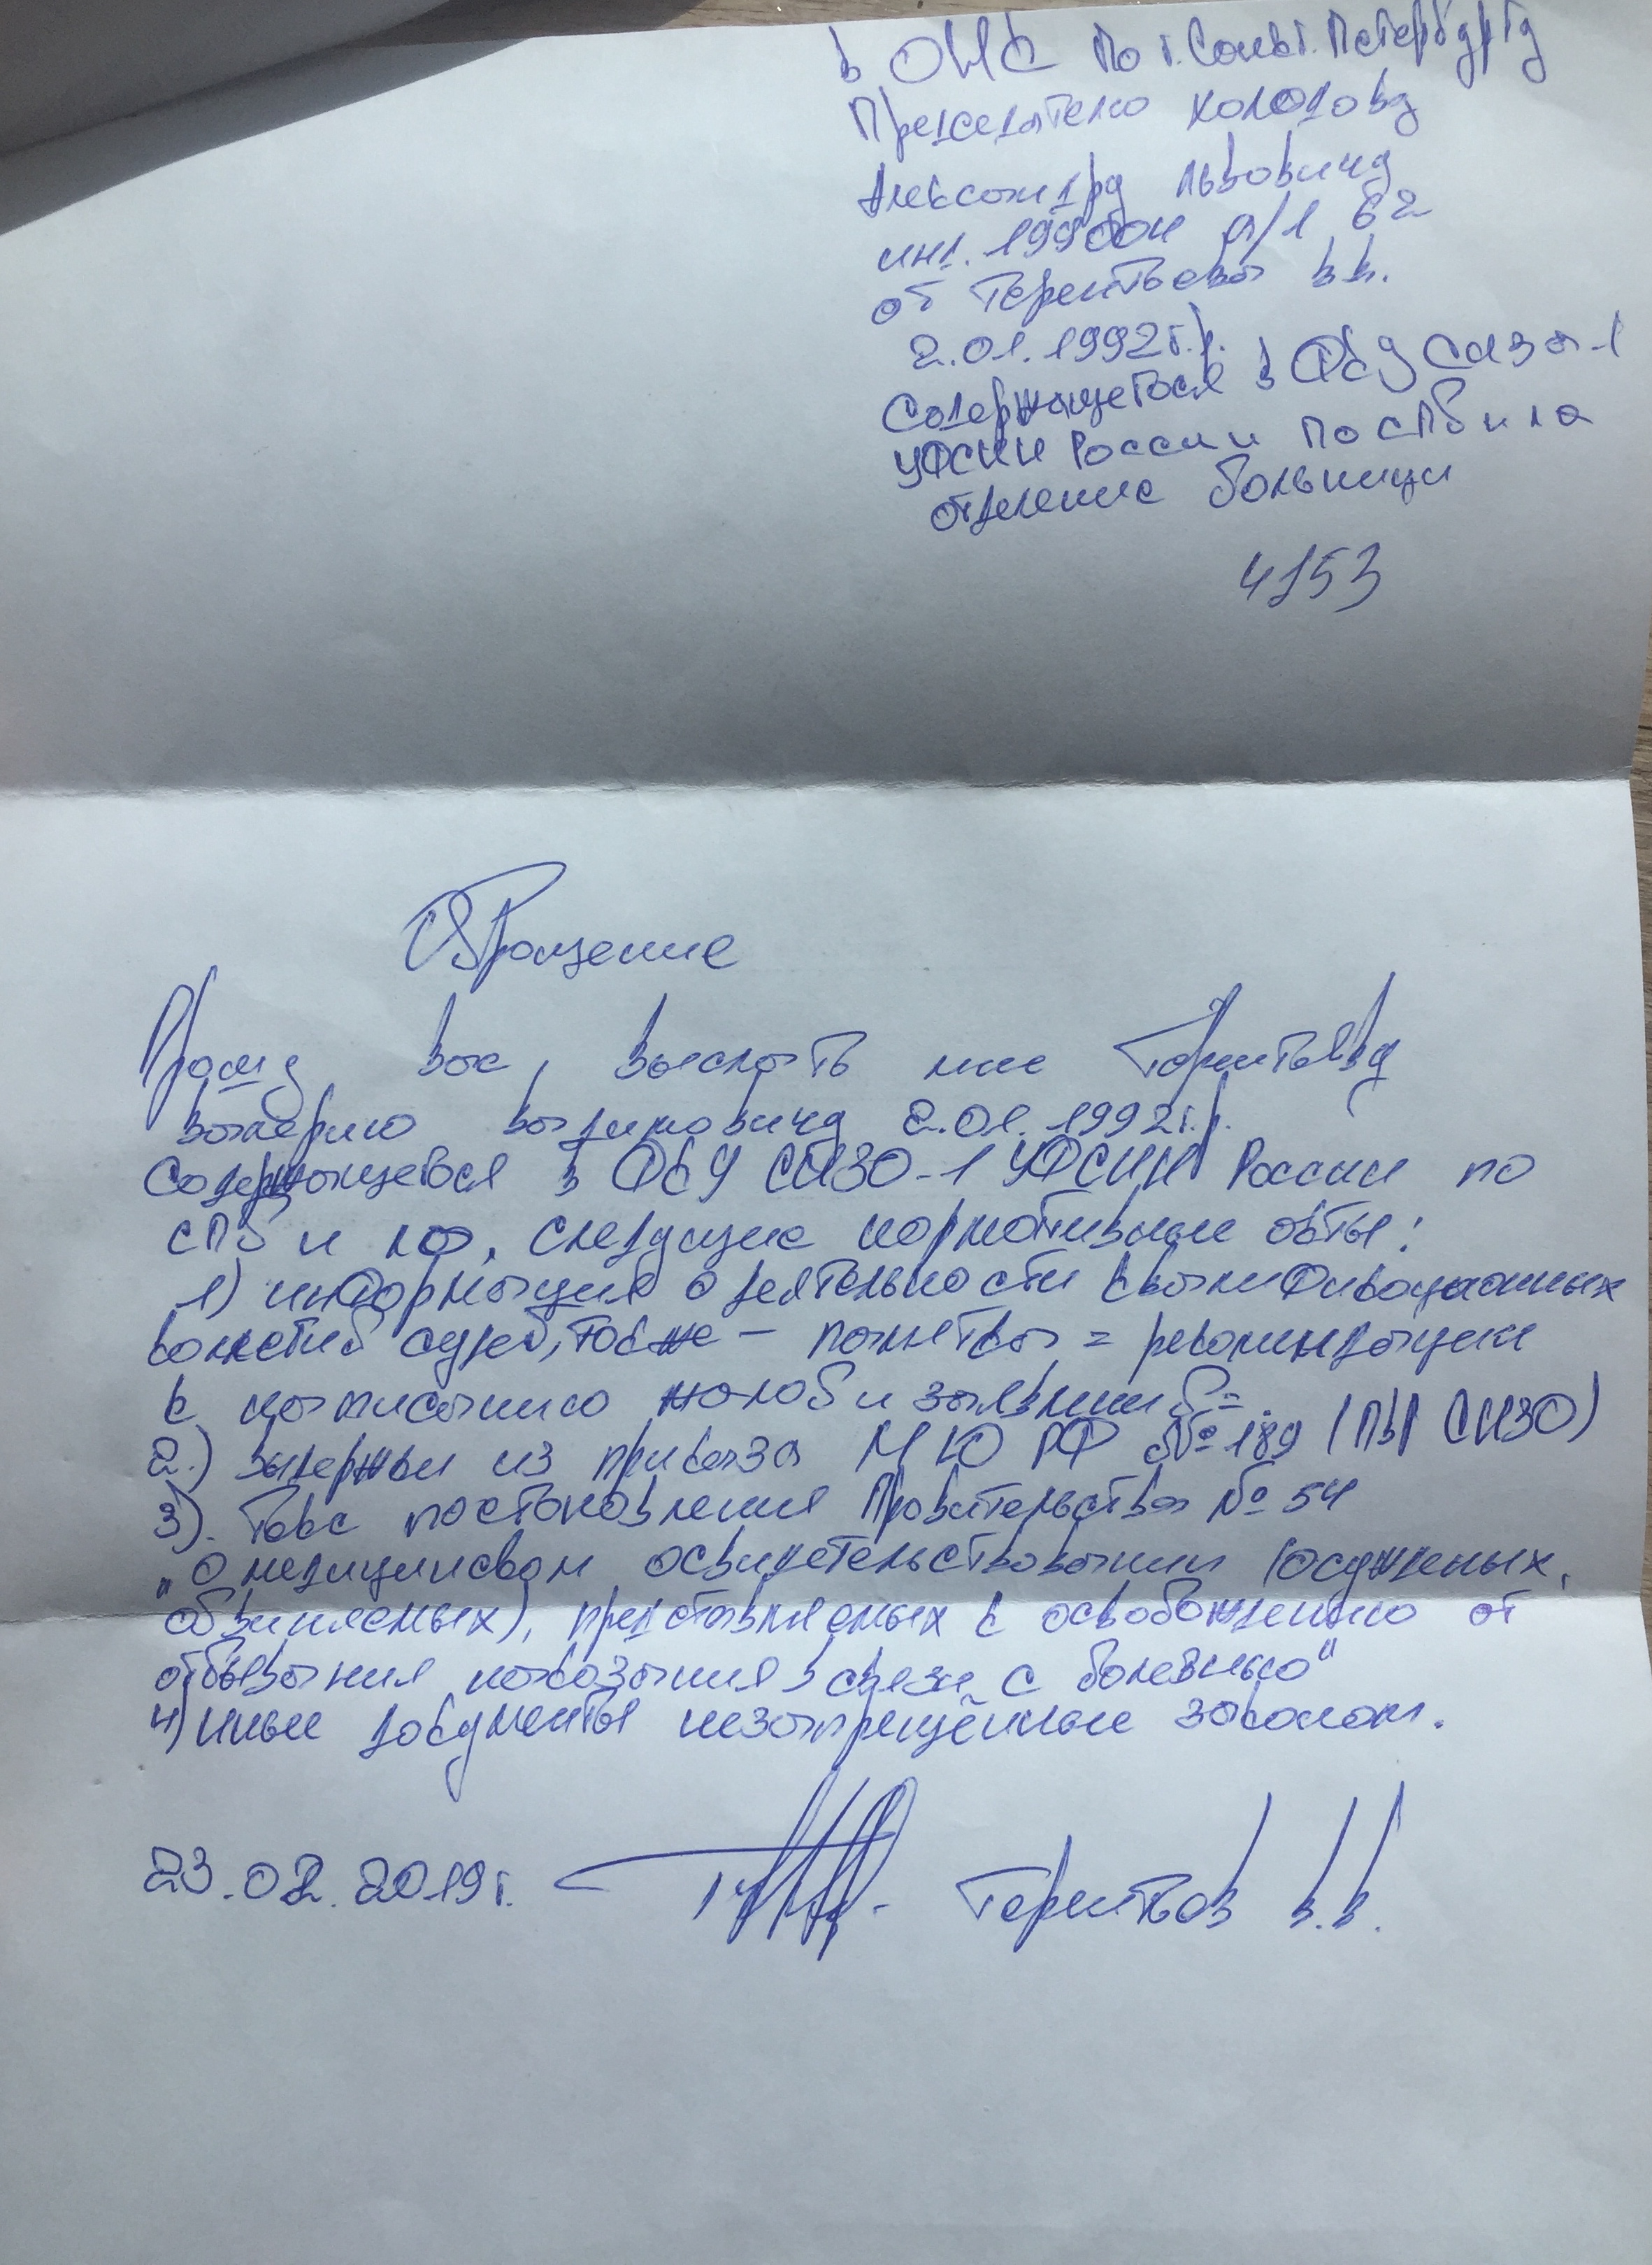 в ОНК по г. Санкт. Петербургу
Председателю Холодову
Александру Львовичу
инд. 199004 а/я 62
от Терентьева В.В.
2.01.1992г.р.
Содержащегося в ФКУ СИЗО-1
УФСИН России по СПб и ЛО
отделение больници
4153
Обращение
Прошу вас, выслать мне Терентьеву
Валерию Вадимовичу 2.01.1992г.р.
Содержащегося в ФКУ СИЗО-1 УФСИН России по
СПб и ЛО, следующие нормативные акты:
1) информация о деятельности квалификационных
коллегий судей, также - памятка = рекомендации
к написанию жалоб и заявлений =.
2.) Выдержки из приказа МЮ РФ №189 (ПВР СИЗО)
3). Такс постановления Правительства №54
„О медицинском освидетельствовании (осужденых,
обвиняемых), представляемых к освобождению от
отбывания наказания в связи с болезнью"
4) иные документы незапрещённые законом.
23.02.2019г. Терентьев В.В.